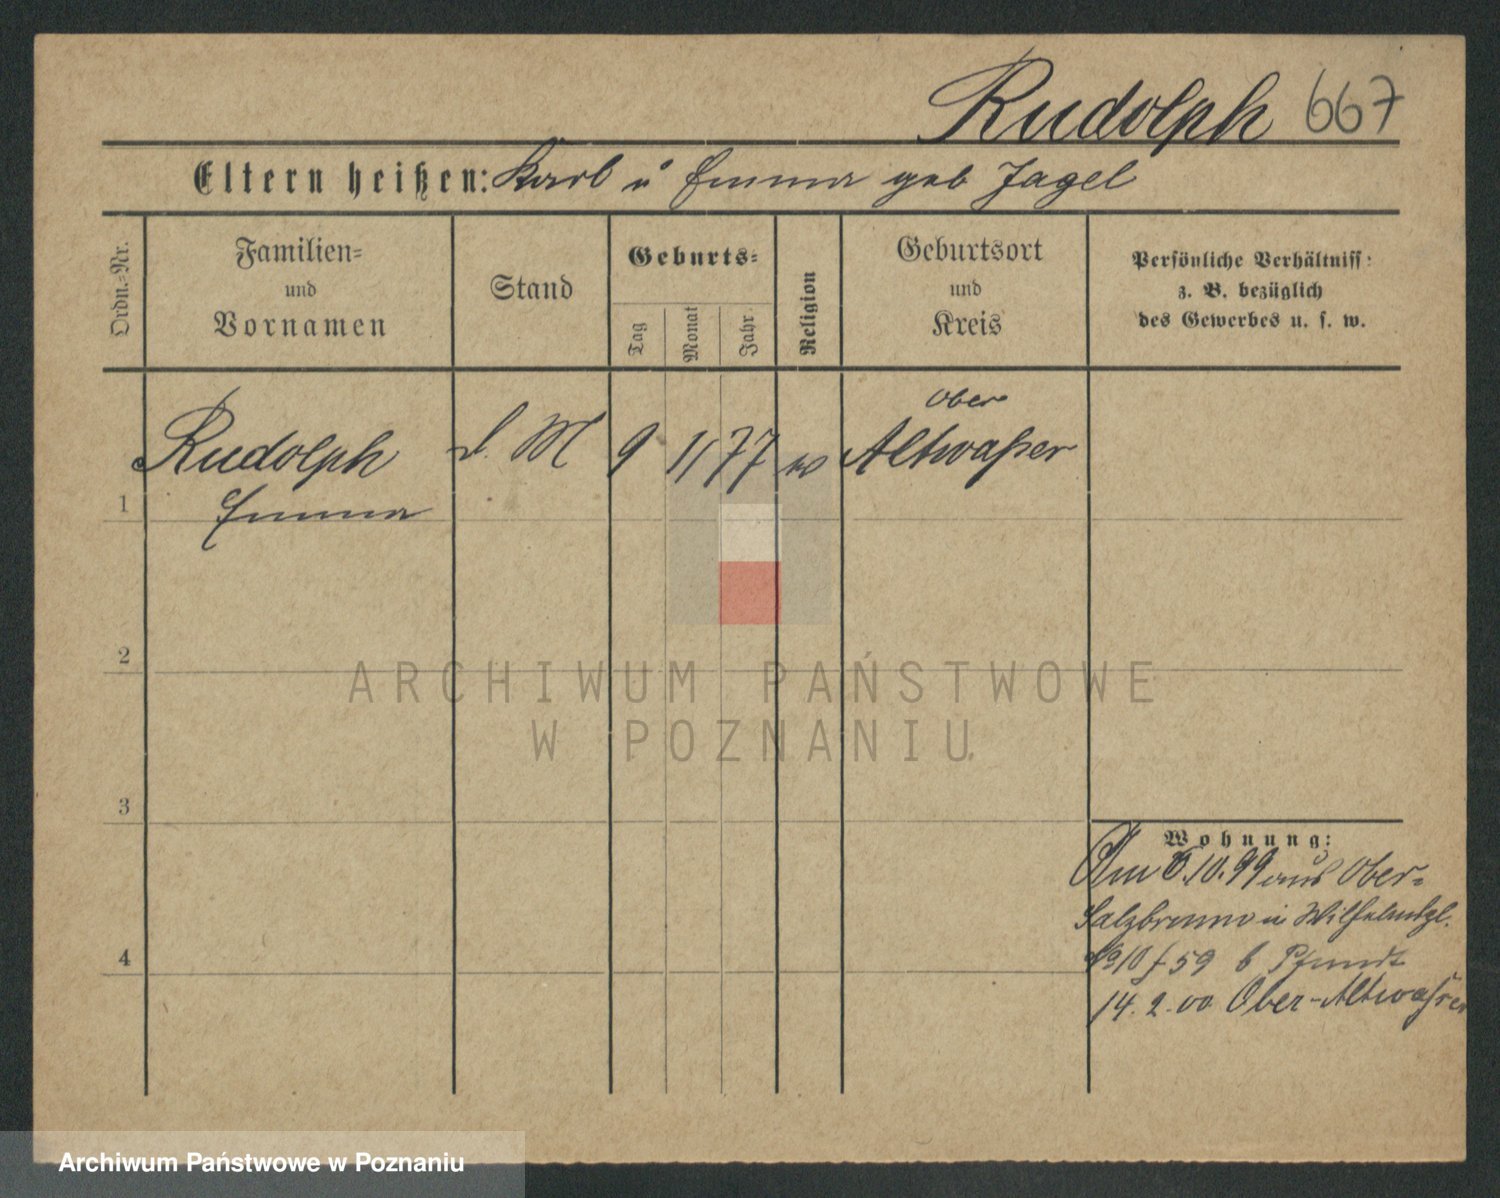 Rudolph 667
Eltern heißen: Karl u Emma geb Jagel
Ordn.-Nr.
Familien-
und
Vornamen
Stand
Geburts-
Tag
Monat
Jahr
Religion
Geburtsort
und
Kreis
Persönliche Verhältniss:
z. B. bezüglich
des Gewerbes u. s. w.
Ober
Rudolph d. M 9 11 77 Altwaßer
1 Emma
2
ARCHIWUM PAŃSTWOWE
W POZNANIU
3
Wohnung:
Am 6.10.99 aus Ober-
Salzbrunn in
59 b Pfundt
14. 2. 00 Ober-Altwaßer
4
Archiwum Państwowe w Poznaniu